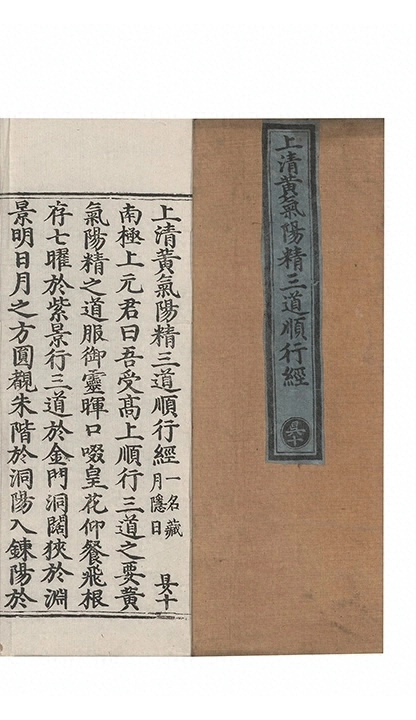 上清黃氣陽精三道順行經
昃十
上清黃氣陽精三道順行經 一名藏月隱日 昃十
南極上元君曰吾受髙上順行三道之要黃
氣陽精之道服御靈暉口啜皇花仰餐飛根
存七曜於紫景行三道於金門洞闊狹於淵
景明日月之方圓觀朱階於洞陽入鍊陽於